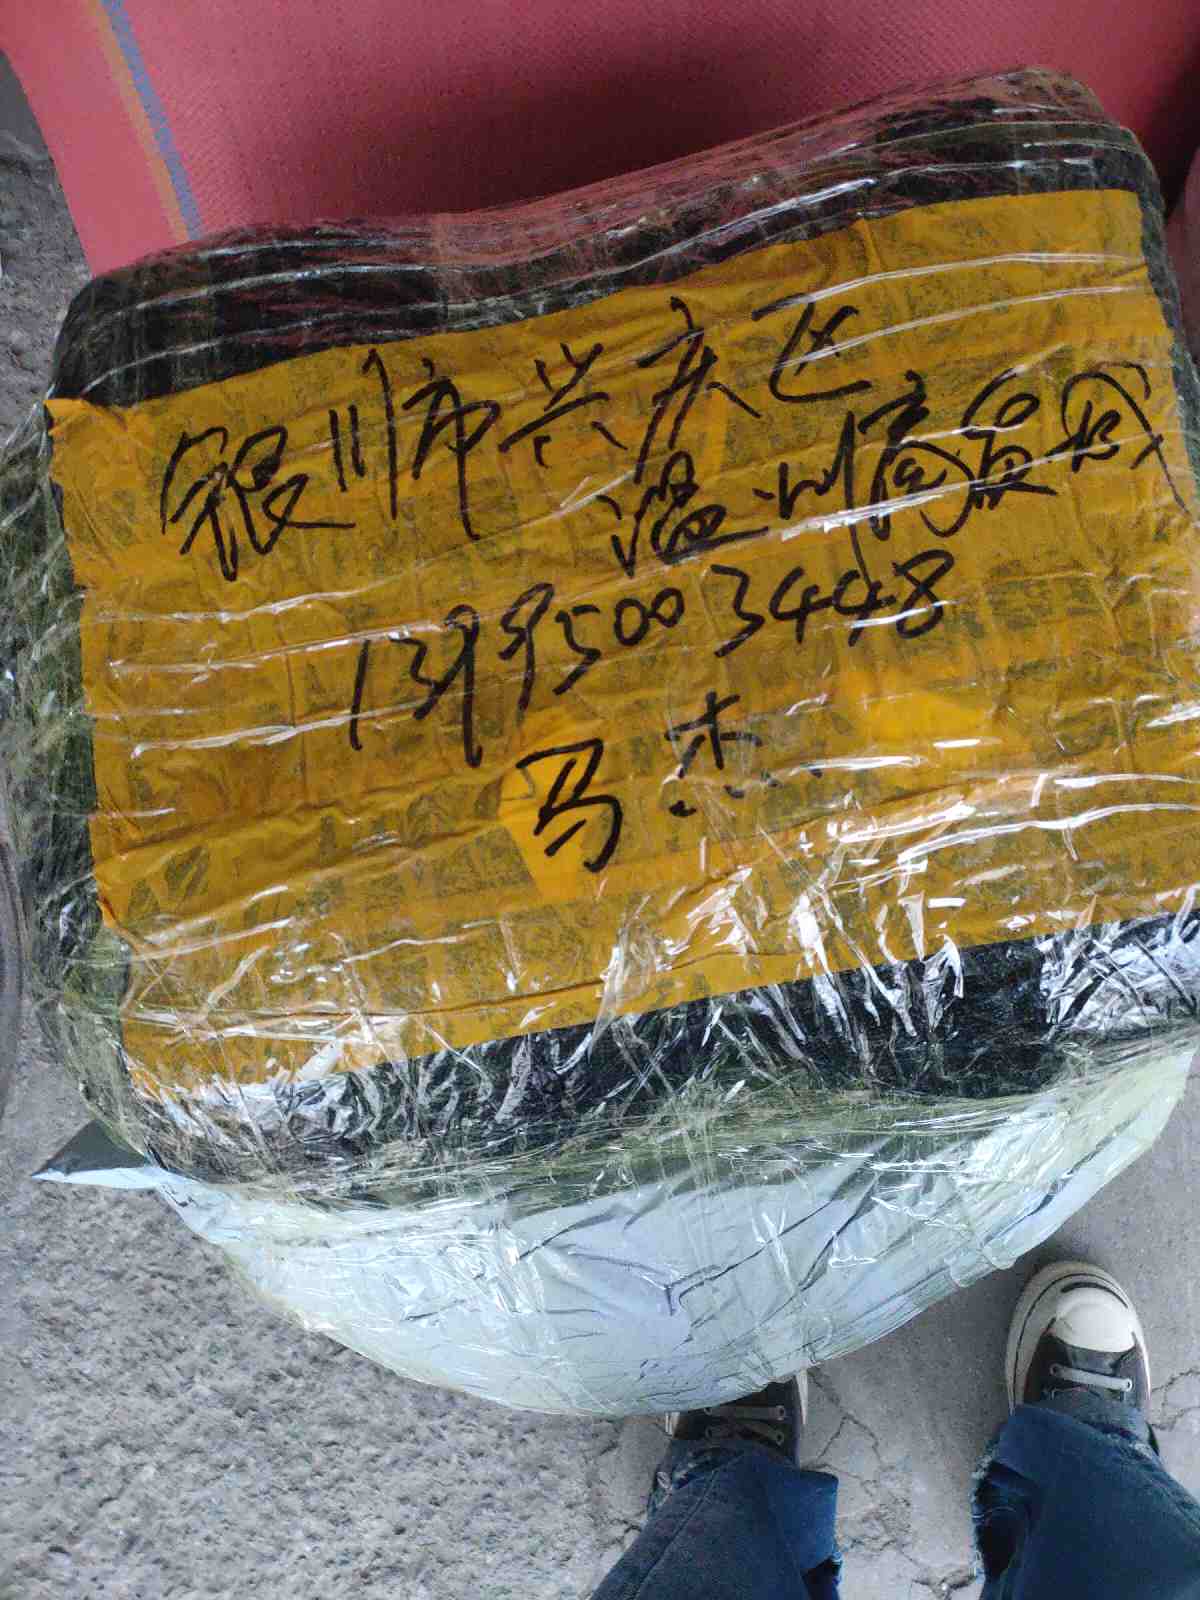 银川市兴庆区
温州商贸城
13995003448
马杰